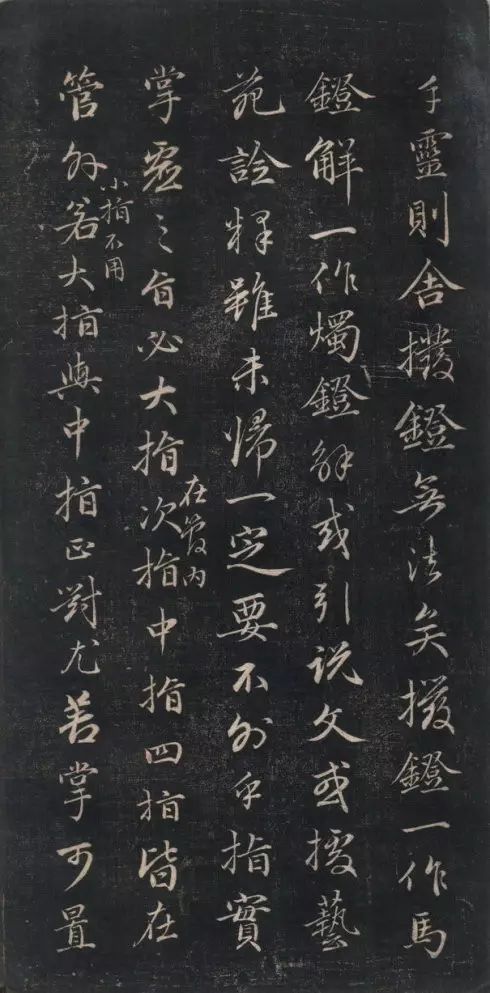 手靈則舍撥鐙無法矣撥鐙一作馬
鐙解一作燭鐙解或引説文或據藝
苑詮釋雖未歸一定要不外乎指實
在管内
掌虛之旨必大指次指中指四指皆在
小指不用
管外若大指與中指正對尤善掌可置